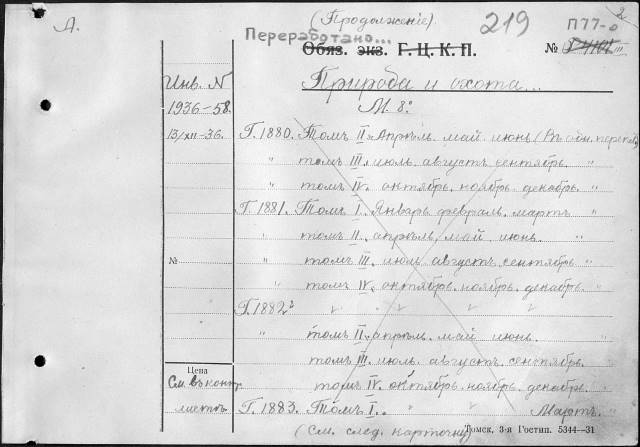 А.
(Продолженіе).
219
П77-о
2
Переработано...
Обяз. экз. Г.Ц.К.П.
№
III
Инв. N
Природа и охота...
1936-58.
М. 8°
13/XII-36.
Г. 1880. Томъ II. Апрѣль. май. июнь. (Въ одн. перепл.)
" томъ III. июль. августъ. сентябрь. "
" томъ IV. октябрь. ноябрь. декабрь. "
Г. 1881. Томъ I. Январь. февраль. мартъ. "
" томъ II. апрѣль. май. июнь. "
№ " томъ III. июль. августъ. сентябрь. "
" томъ IV. октябрь. ноябрь. декабрь. "
Г. 1882? " " " "
" томъ II. апрѣль. май. июнь.
томъ III. июль. августъ. сентябрь.
Цена
См. въ конт. томъ IV. октябрь. ноябрь. декабрь.
листкѣ Г. 1883. Томъ I. " Мартъ. "
(См. след. карточку)
Томск, 3-я Гостип. 5344—31